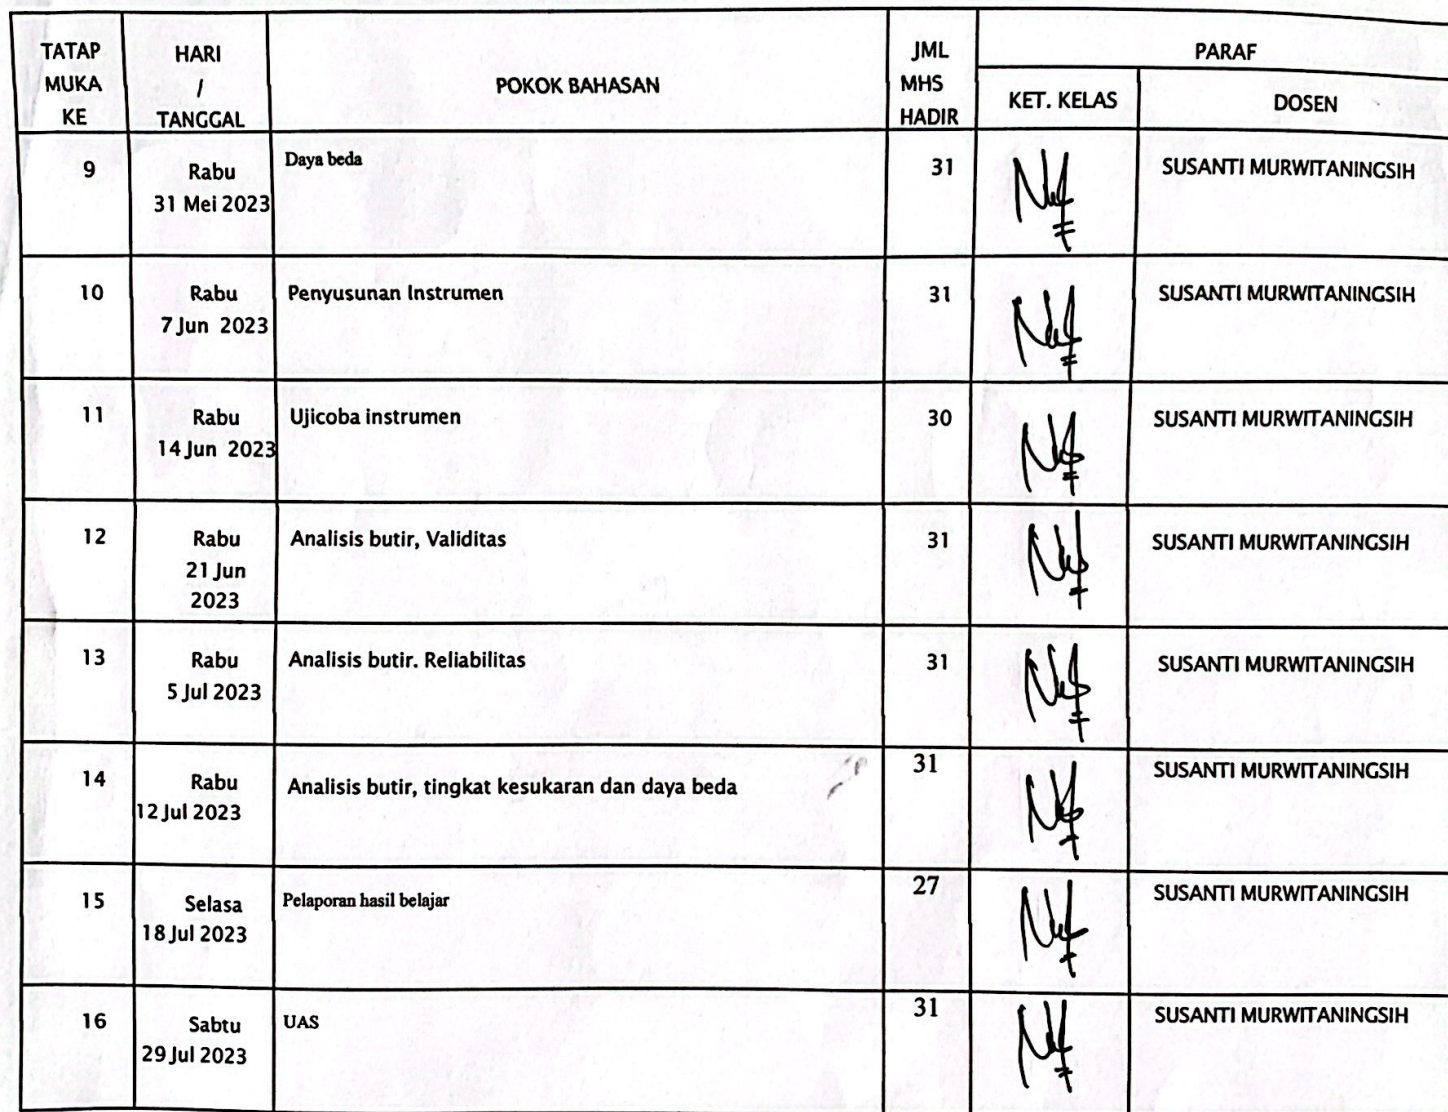 TATAP MUKA KE
HARI / TANGGAL
POKOK BAHASAN
JML MHS HADIR
PARAF
KET. KELAS
DOSEN
9
Rabu
31 Mei 2023
Daya beda
31
SUSANTI MURWITANINGSIH
10
Rabu
7 Jun 2023
Penyusunan Instrumen
31
SUSANTI MURWITANINGSIH
11
Rabu
14 Jun 2023
Ujicoba instrumen
30
SUSANTI MURWITANINGSIH
12
Rabu
21 Jun
2023
Analisis butir, Validitas
31
SUSANTI MURWITANINGSIH
13
Rabu
5 Jul 2023
Analisis butir. Reliabilitas
31
SUSANTI MURWITANINGSIH
14
Rabu
12 Jul 2023
Analisis butir, tingkat kesukaran dan daya beda
31
SUSANTI MURWITANINGSIH
15
Selasa
18 Jul 2023
Pelaporan hasil belajar
27
SUSANTI MURWITANINGSIH
16
Sabtu
29 Jul 2023
UAS
31
SUSANTI MURWITANINGSIH